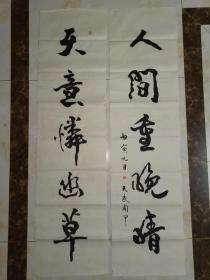 天意憐幽草
人間重晚晴